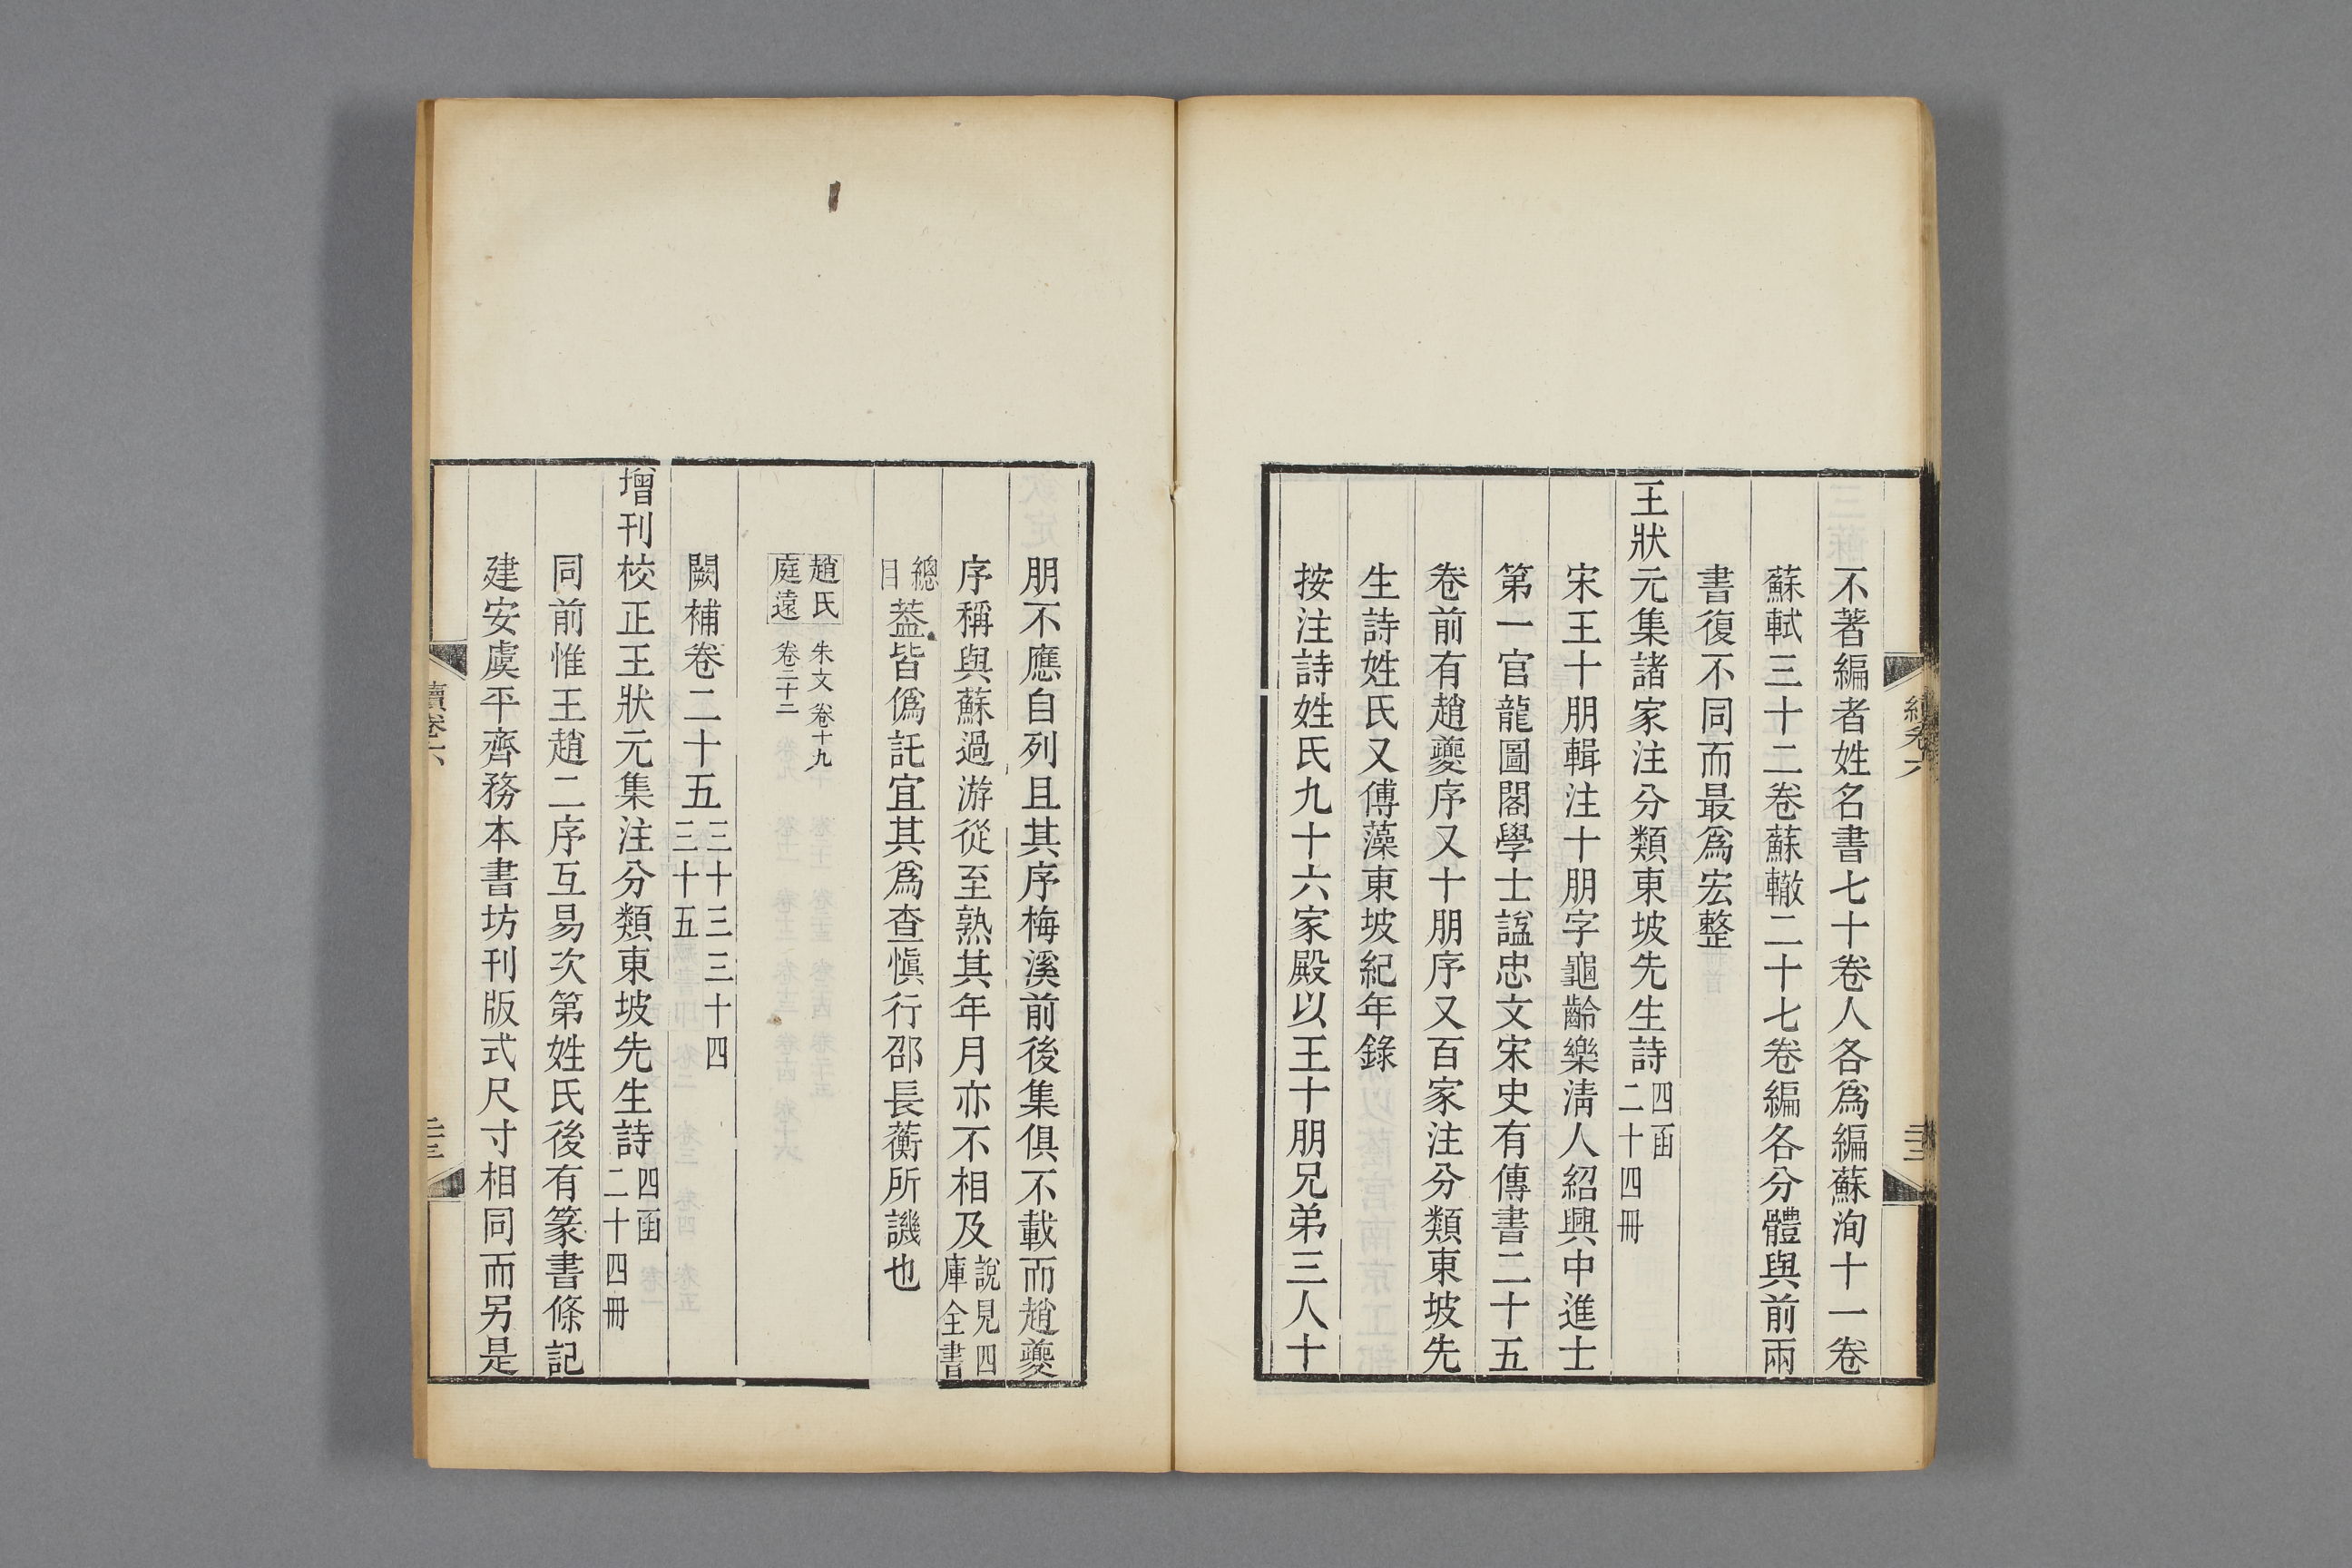 不著編者姓名書七十卷人各爲編蘇洵十一卷
蘇軾三十二卷蘇轍二十七卷編各分體與前兩
書復不同而最爲宏整
王狀元集諸家注分類東坡先生詩四函二十四冊
宋王十朋輯注十朋字龜齡樂清人紹興中進士
第一官龍圖閣學士諡忠文宋史有傳書二十五
卷前有趙夔序又十朋序又百家注分類東坡先
生詩姓氏又傅藻東坡紀年錄
按注詩姓氏九十六家殿以王十朋兄弟三人十
朋不應自列且其序梅溪前後集俱不載而趙夔
序稱與蘇過游從至熟其年月亦不相及說見四庫全書
總目葢皆僞託宜其爲查愼行邵長蘅所譏也
趙氏庭遠 朱文 卷十九 卷二十二
闕補卷二十五 三十三 三十四 三十五
增刊校正王狀元集注分類東坡先生詩四函二十四冊
同前惟王趙二序互易次第姓氏後有篆書條記
建安虞平齋務本書坊刊版式尺寸相同而另是
續卷六